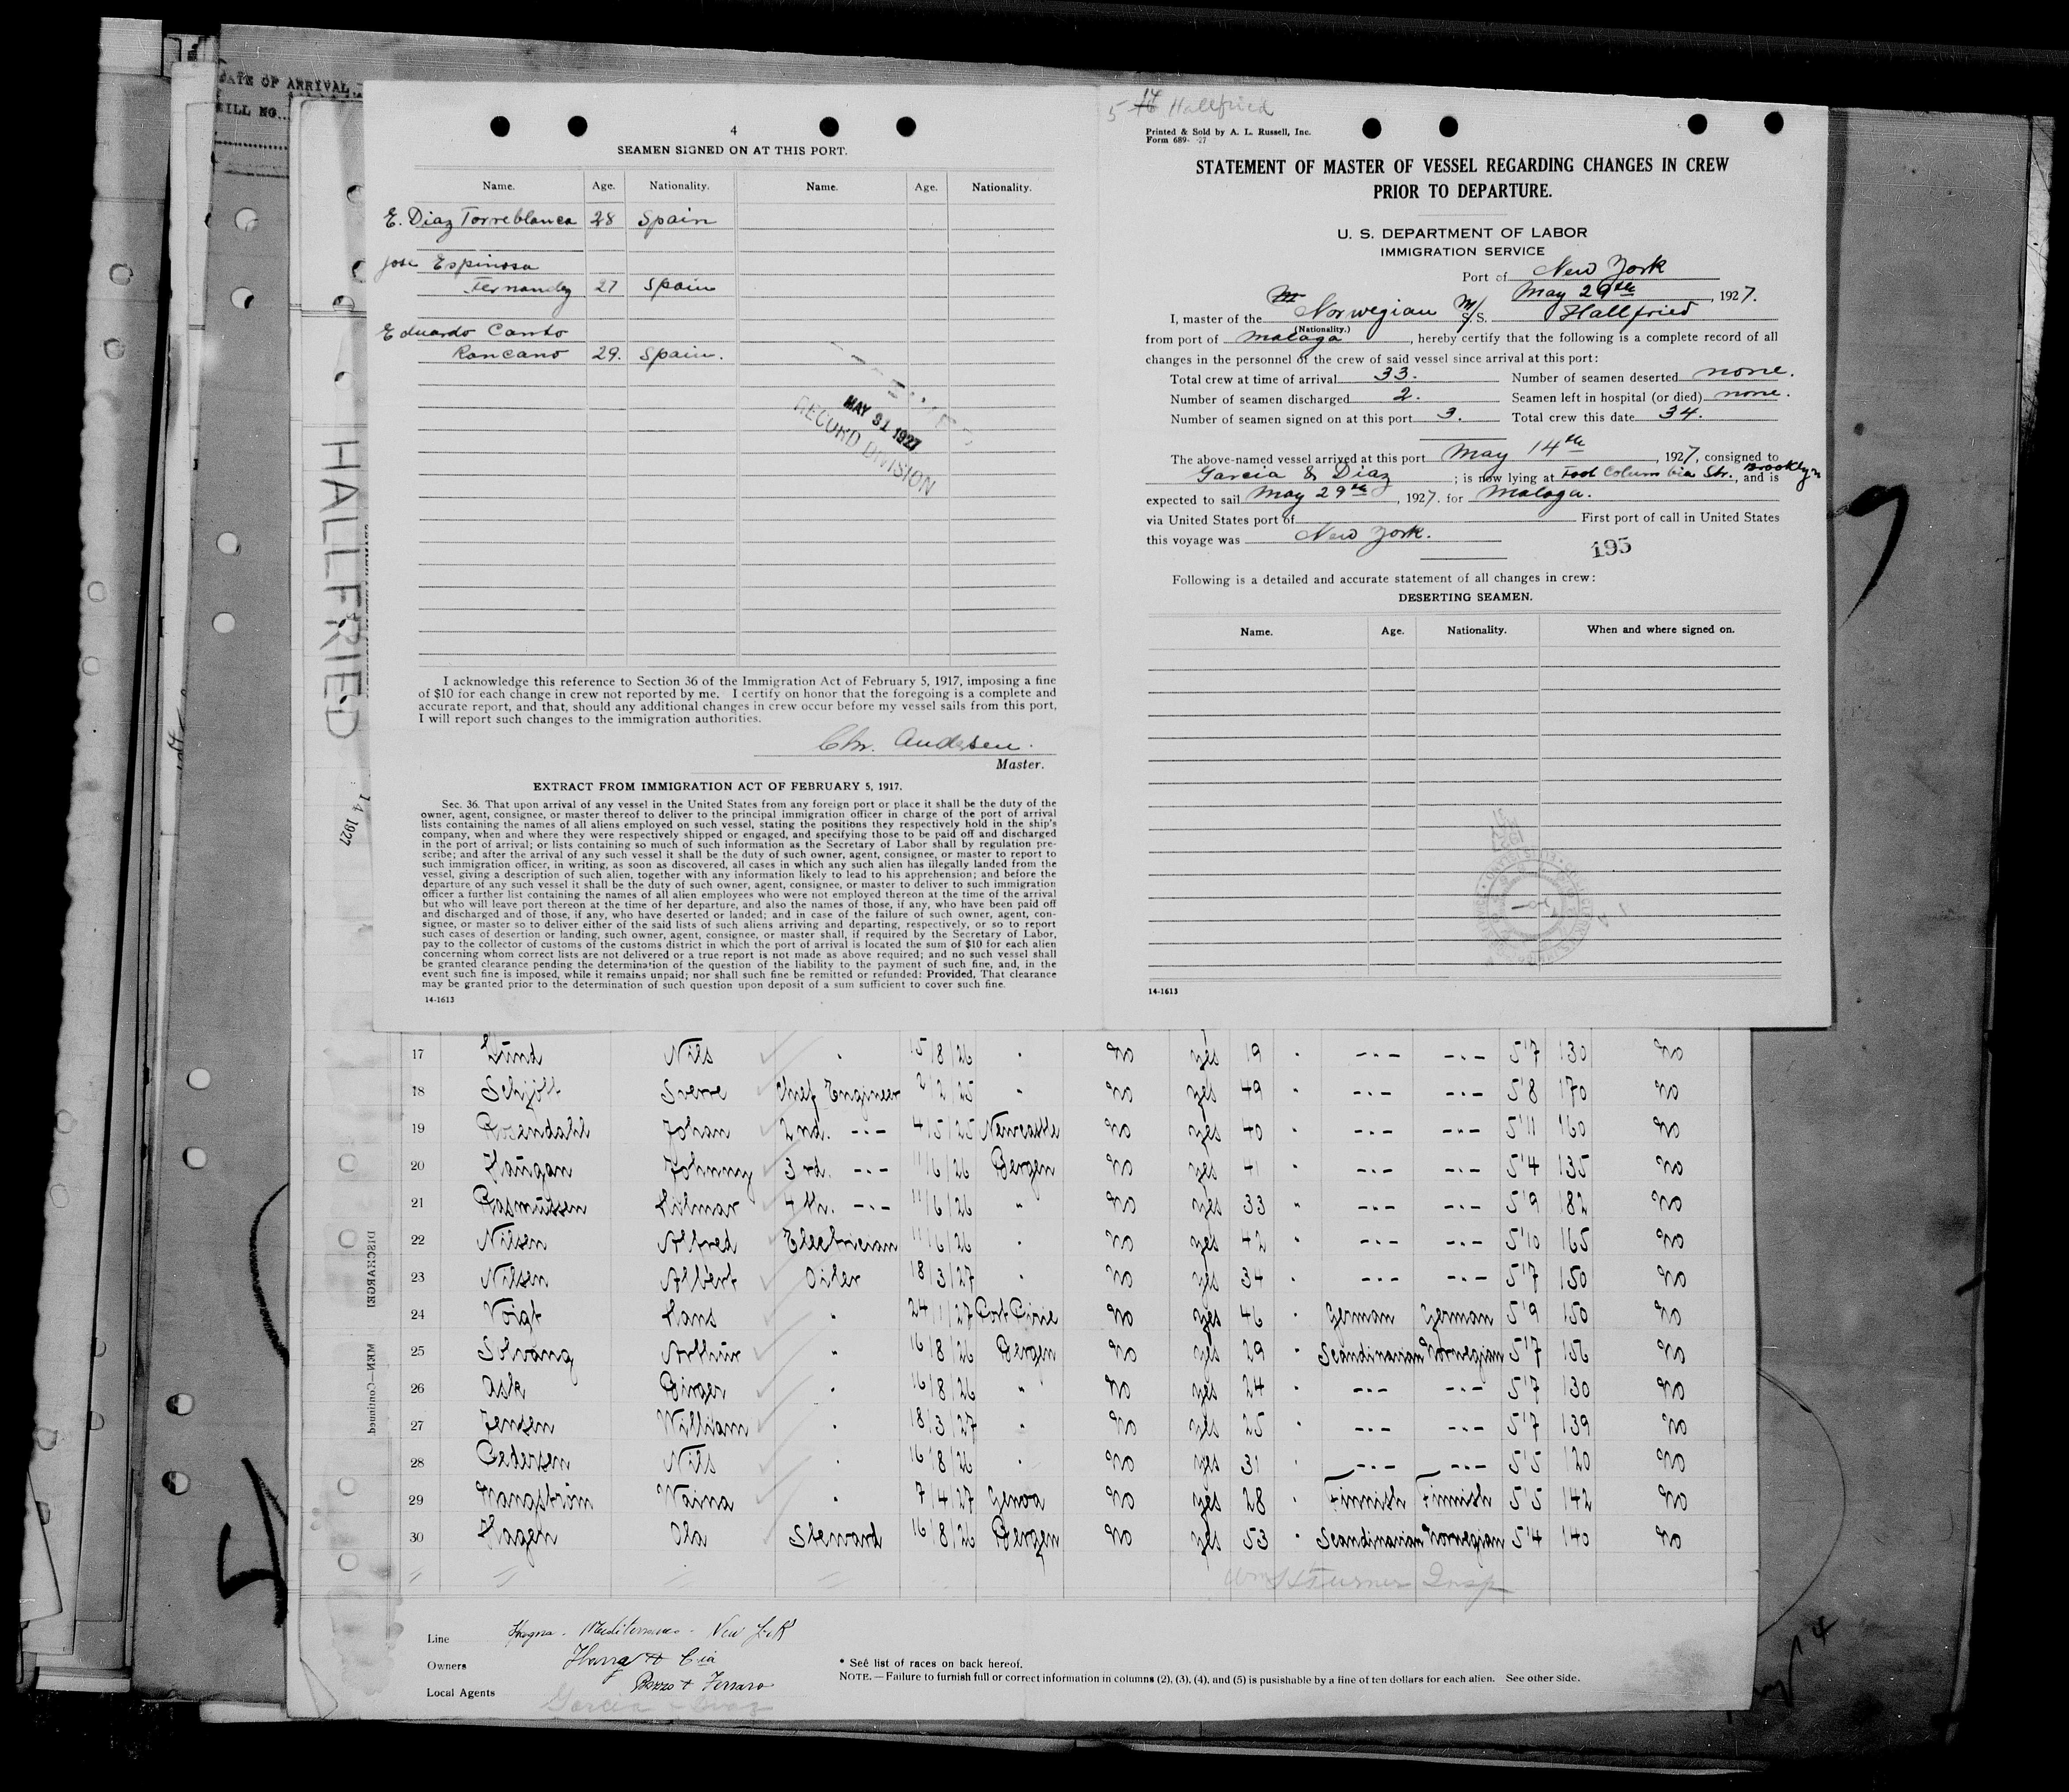 DATE OF ARRIVAL
BILL NO.
HALLFRIED
14 1927
DISCHARGED
MEN—Continued
4
SEAMEN SIGNED ON AT THIS PORT.
Name. Age. Nationality. Name. Age. Nationality.
E. Diaz Torreblanca 28 Spain
Jose Espinosa
Fernandez 27 Spain
Eduardo Canto
Roncano 29. Spain.
MAY 31 1927
RECORD DIVISION
I acknowledge this reference to Section 36 of the Immigration Act of February 5, 1917, imposing a fine
of $10 for each change in crew not reported by me. I certify on honor that the foregoing is a complete and
accurate report, and that, should any additional changes in crew occur before my vessel sails from this port,
I will report such changes to the immigration authorities.
Chr. Andersen.
Master.
EXTRACT FROM IMMIGRATION ACT OF FEBRUARY 5, 1917.
Sec. 36. That upon arrival of any vessel in the United States from any foreign port or place it shall be the duty of the
owner, agent, consignee, or master thereof to deliver to the principal immigration officer in charge of the port of arrival
lists containing the names of all aliens employed on such vessel, stating the positions they respectively hold in the ship's
company, when and where they were respectively shipped or engaged, and specifying those to be paid off and discharged
in the port of arrival; or lists containing so much of such information as the Secretary of Labor shall by regulation pre-
scribe; and after the arrival of any such vessel it shall be the duty of such owner, agent, consignee, or master to report to
such immigration officer, in writing, as soon as discovered, all cases in which any such alien has illegally landed from the
vessel, giving a description of such alien, together with any information likely to lead to his apprehension; and before the
departure of any such vessel it shall be the duty of such owner, agent, consignee, or master to deliver to such immigration
officer a further list containing the names of all alien employees who were not employed thereon at the time of the arrival
but who will leave port thereon at the time of her departure, and also the names of those, if any, who have been paid off
and discharged and of those, if any, who have deserted or landed; and in case of the failure of such owner, agent, con-
signee, or master so to deliver either of the said lists of such aliens arriving and departing, respectively, or so to report
such cases of desertion or landing, such owner, agent, consignee, or master shall, if required by the Secretary of Labor,
pay to the collector of customs of the customs district in which the port of arrival is located the sum of $10 for each alien
concerning whom correct lists are not delivered or a true report is not made as above required; and no such vessel shall
be granted clearance pending the determination of the question of the liability to the payment of such fine, and, in the
event such fine is imposed, while it remains unpaid; nor shall such fine be remitted or refunded: Provided, That clearance
may be granted prior to the determination of such question upon deposit of a sum sufficient to cover such fine.
14-1613
5 Hallfried
Printed & Sold by A. L. Russell, Inc.
Form 689- 27
STATEMENT OF MASTER OF VESSEL REGARDING CHANGES IN CREW
PRIOR TO DEPARTURE.
U. S. DEPARTMENT OF LABOR
IMMIGRATION SERVICE
Port of New York
May 29th, 1927.
I, master of the Norwegian M/S. Hallfried
(Nationality.)
from port of Malaga, hereby certify that the following is a complete record of all
changes in the personnel of the crew of said vessel since arrival at this port:
Total crew at time of arrival 33. Number of seamen deserted none.
Number of seamen discharged 2. Seamen left in hospital (or died) none.
Number of seamen signed on at this port 3. Total crew this date 34.
The above-named vessel arrived at this port May 14th, 1927, consigned to
Garcia & Diaz; is now lying at Foot Columbia Str. Brooklyn, and is
expected to sail May 29th, 1927. for Malaga.
via United States port of First port of call in United States
this voyage was New York.
195
Following is a detailed and accurate statement of all changes in crew:
DESERTING SEAMEN.
Name. Age. Nationality. When and where signed on.
14-1613
17 Lund Nils " 15/8/26 " No yes 19 " -"- -"- 5'7 130 No
18 Schjött Sverre Chief Engineer 2/2/25 " No yes 49 " -"- -"- 5'8 170 No
19 Rosendahl Johan 2nd. -"- 4/5/25 Newcastle No yes 40 " -"- -"- 5'11 160 No
20 Haugan Johnny 3rd. -"- 11/6/26 Bergen No yes 41 " -"- -"- 5'4 135 No
21 Rasmussen Hilmar 4th. -"- 11/6/26 " No yes 33 " -"- -"- 5'9 182 No
22 Nilsen Alfred Electrician 11/6/26 " No yes 42 " -"- -"- 5'10 165 No
23 Nilsen Albert Oiler 18/3/27 " No yes 34 " -"- -"- 5'7 150 No
24 Voigt Hans " 24/1/27 Port Pirie No yes 46 " German German 5'9 150 No
25 Solvang Arthur " 16/8/26 Bergen No yes 29 " Scandinavian Norwegian 5'7 156 No
26 Ask Birger " 16/8/26 " No yes 24 " -"- -"- 5'7 130 No
27 Jensen William " 18/3/27 " No yes 25 " -"- -"- 5'7 139 No
28 Pedersen Nils " 16/8/26 " No yes 31 " -"- -"- 5'5 120 No
29 Wangström Waina " 7/4/27 Genoa No yes 28 " Finnish Finnish 5'5 142 No
30 Hagen Ola Steward 16/8/26 Bergen No yes 53 " Scandinavian Norwegian 5'4 140 No
Wm H Turner Insp
Line Mediterraneo - New York
Owners Ybarra & Cia
Local Agents Ferraro
Garcia & Diaz
* See list of races on back hereof.
NOTE.—Failure to furnish full or correct information in columns (2), (3), (4), and (5) is punishable by a fine of ten dollars for each alien. See other side.